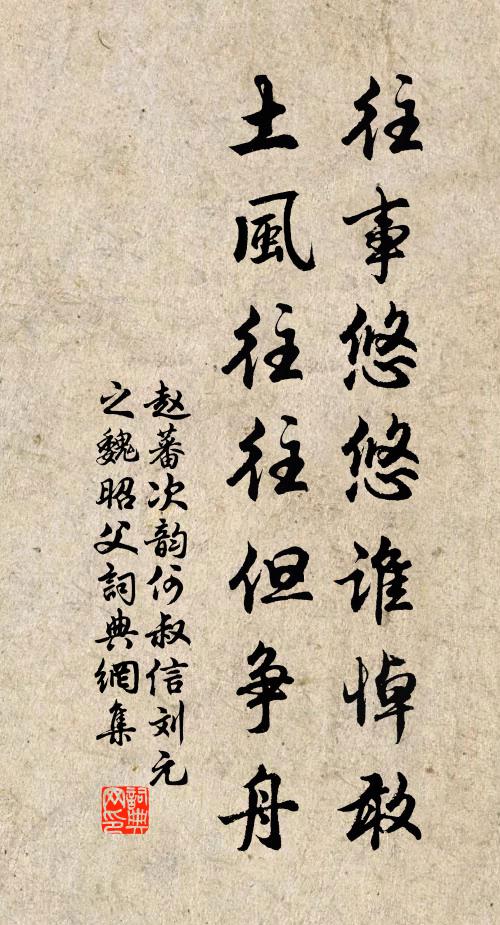 往事悠悠谁悼敢
土風往往但争舟
赵蕃次韵何叔信刘元
之魏昭父詞典網集
詞典网印